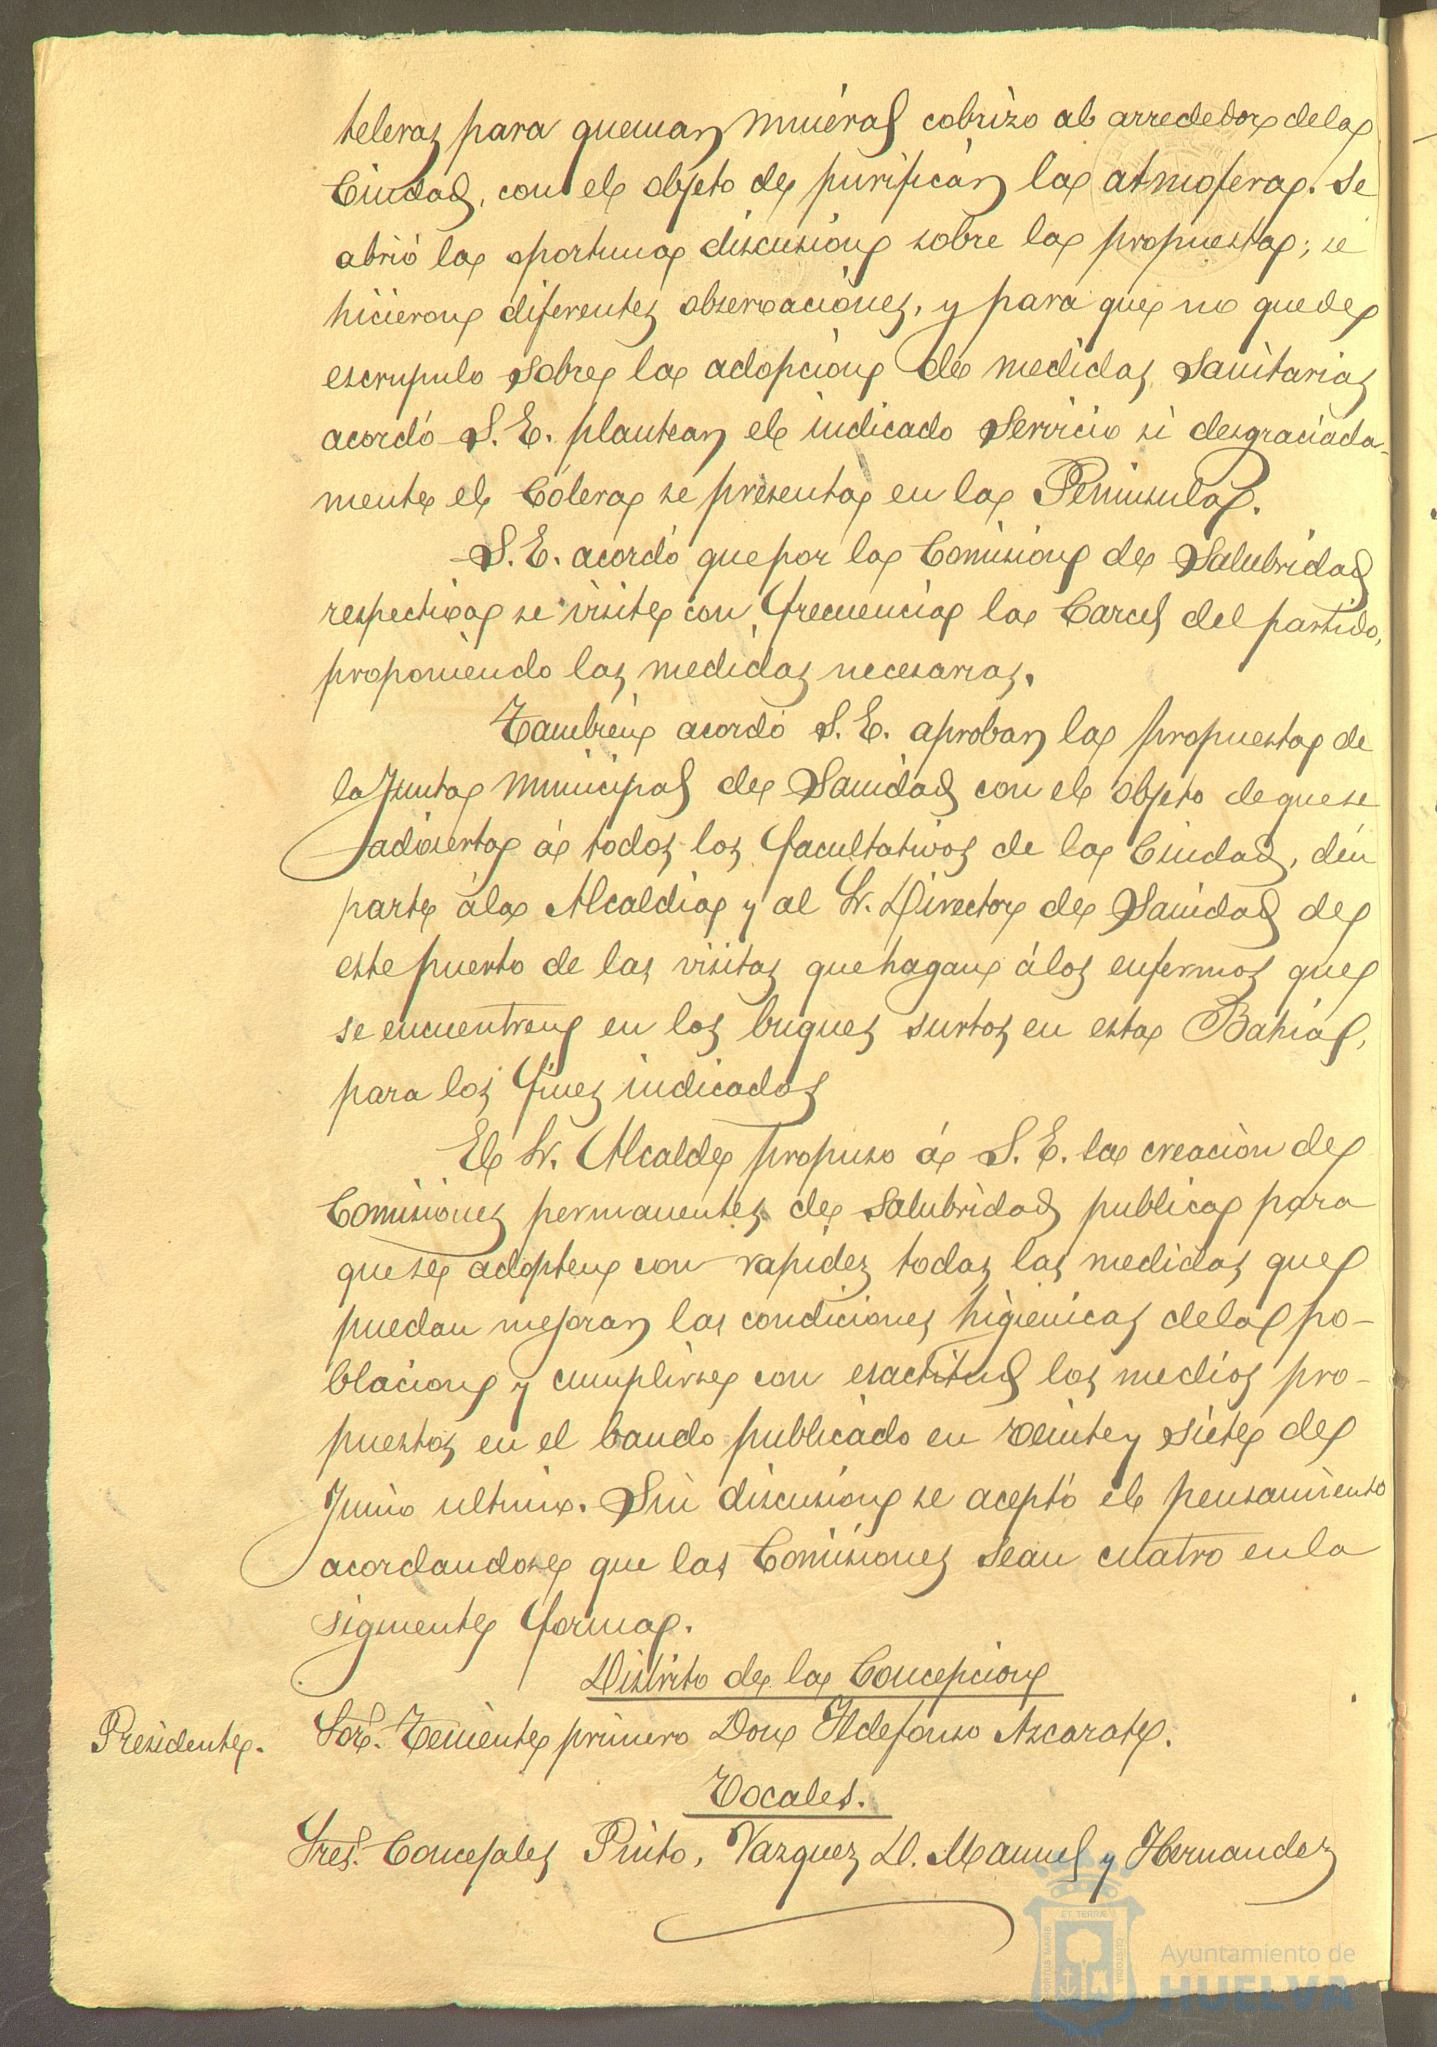 teleras para quemar mineral cobrizo al arrededor de la
Ciudad, con el objeto de purificar la atmofera. Se
abrió la oportuna discusion sobre la propuesta; se
hicieron diferentes observaciónes, y para que no quede
escrupulo sobre la adopcion de medidas Sanitarias
acordó S. E. plantear el indicado Servicio si desgraciada-
mente el Cólera se presenta en la Peninsula.
S. E. acordó que por la Comision de Salubridad
respectiva se visite con frecuencia la Carcel del partido,
proponiendo las medidas necesarias.
Tambien acordó S. E. aprobar la propuesta de
la Junta Municipal de Sanidad con el objeto de que se
advierta á todos los facultativos de la Ciudad, dén
parte á la Alcaldia y al Sr. Director de Sanidad de
este puerto de las visitas que hagan á los enfermos que
se encuentren en los buques surtos en esta Bahia,
para los fines indicados
El Sr. Alcalde propuso á S. E. la creación de
Comisiones permanentes de Salubridad publica para
que se adopten con rapidez todas las medidas que
puedan mejorar las condiciones higienicas de la po-
blacion y cumplirse con esactitud los medios pro-
puestos en el bando publicado en veinte y siete de
Junio ultimo. Sin discusion se aceptó el pensamiento
acordandose que las Comisiones sean cuatro en la
siguiente forma.
Distrito de la Concepcion
Presidente. Sor. Teniente primero Don Ildefonso Azcarate.
Vocales.
Sres. Concejales Pinto, Vazquez D. Manuel y Hernandez
Ayuntamiento de
HUELVA